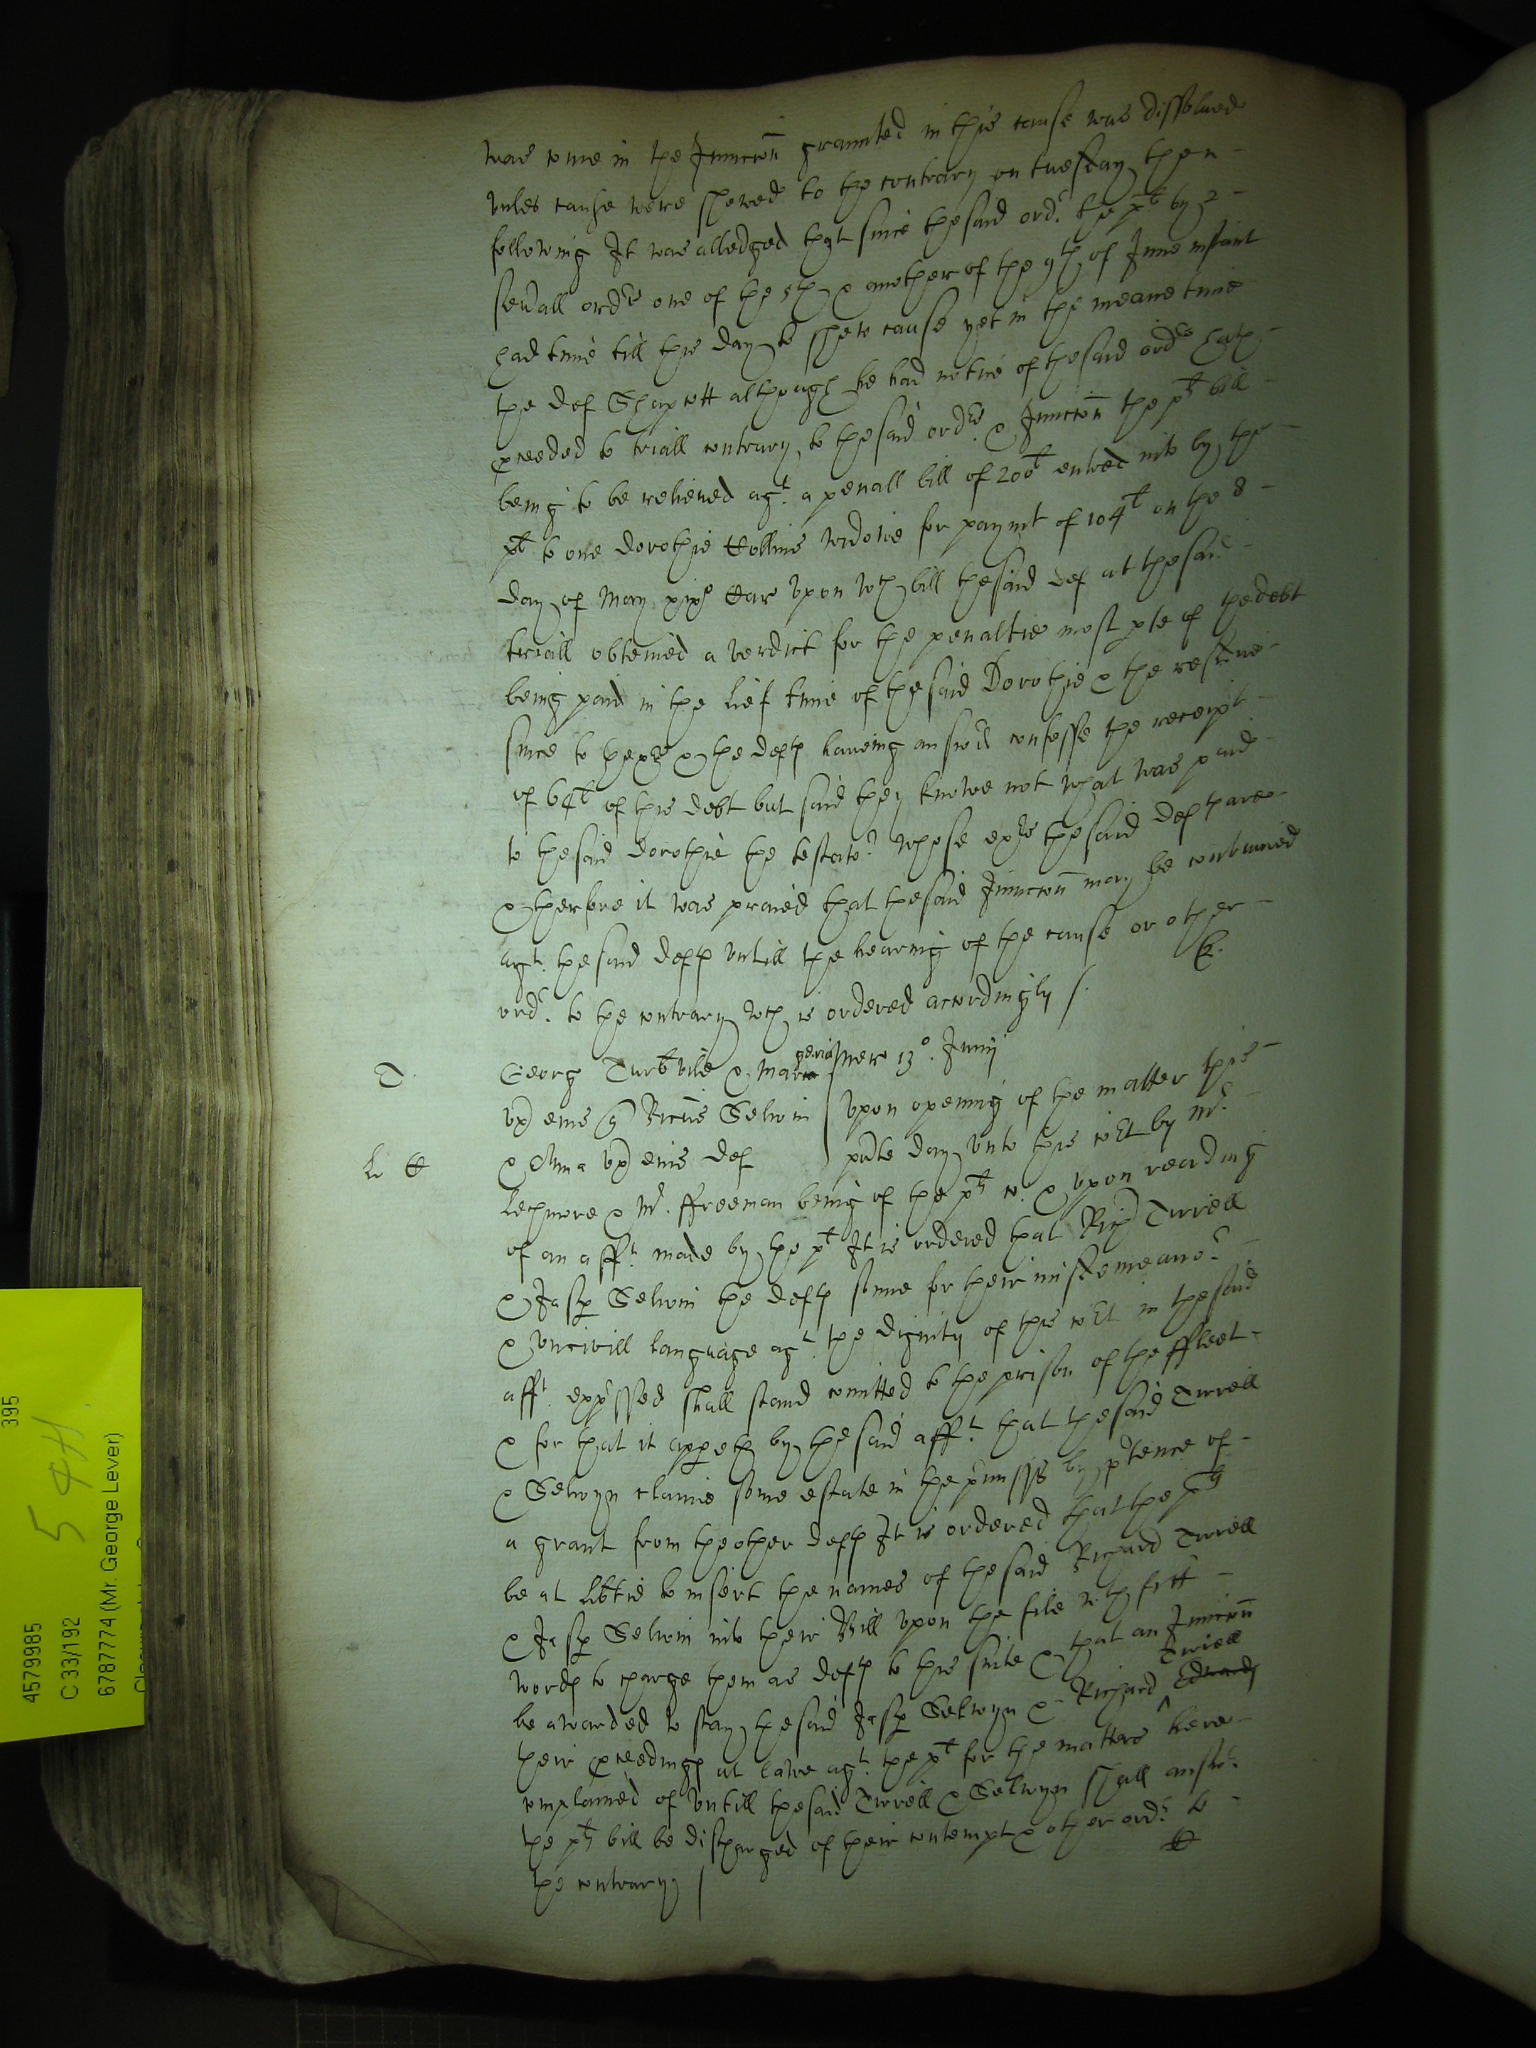 was come in the Iniunccōn graunted in this cause was dissolued
vnles cause were shewed to the contrary on tuesday then
following It was alledged that since the said ordr. the plt by 2
seuall ordrs one of the 5th & another of the 9th of June instant
had time till this day to shew cause yet in the meane time
the def Shapcott although he had notice of the said ordrs hath
pceeded to triall contrary to the said ordrs. & Iniunccōn the plts bill
being to be relieued agt. a penall bill of 200l entred into by the
plt to one Dorothie Collins widowe for paymt of 104l on the 8
day of May Car vpon wch bill the said def at the said
triall obteined a verdict for the penaltie most pte of the debt
being paid in the lief time of the said Dorothie & the residue
since to the exrs & the defts haueing answd confesse the receipt
of 64l of this debt but said they knowe not what was paid
to the said Dorothie the testator. whose exrs the said defts are
& therfore it was praied that the said Iniunccōn may be continued
agt. the said defts vntill the hearing of the cause or other
ordr. to the contrary wch is ordered accordingly /.
T. Georg Turbvile & Maria gen Mer 13o. Junij
vx eius q Ricus Selwin vpon opening of the matter this
li & Anna vx eius def pnte day vnto this cort by Mr.
Lechmore & Mr. ffreeman being of the plts co. & vpon reading
of an afft. made by the plt It is ordered that Rich Tirrell
& Jasp Selwin the defts sonne for their misdemeanor.
& vncivill language agt. the dignity of this cort in the said
afft. exprssed shall stand comitted to the prison of the ffleet
& for that it appeth by the said afft. that the said Tirrell
& Selwyn claime some estate in the prmisss by prtence of
a grant from the other defts It is ordered that the plts
be at libtie to insert the names of the said Richard Tirrell
& Jasp Selwin into their Bill vpon the file wth fitt
words to charge them as defts to this suite & that an Iniunccōn
be awarded to stay the said Jasp Selwyn & Richard Edwards Tirrell
their pceedings at lawe agt. the plt for the matters here
complained of vntill the said Tirrell & Selwyn shall answr.
the plts bill be discharged of their contempt & other ordr. to
the contrary /
395
5 4H.
4579985
C 33/192
6787774 (Mr. George Lever)